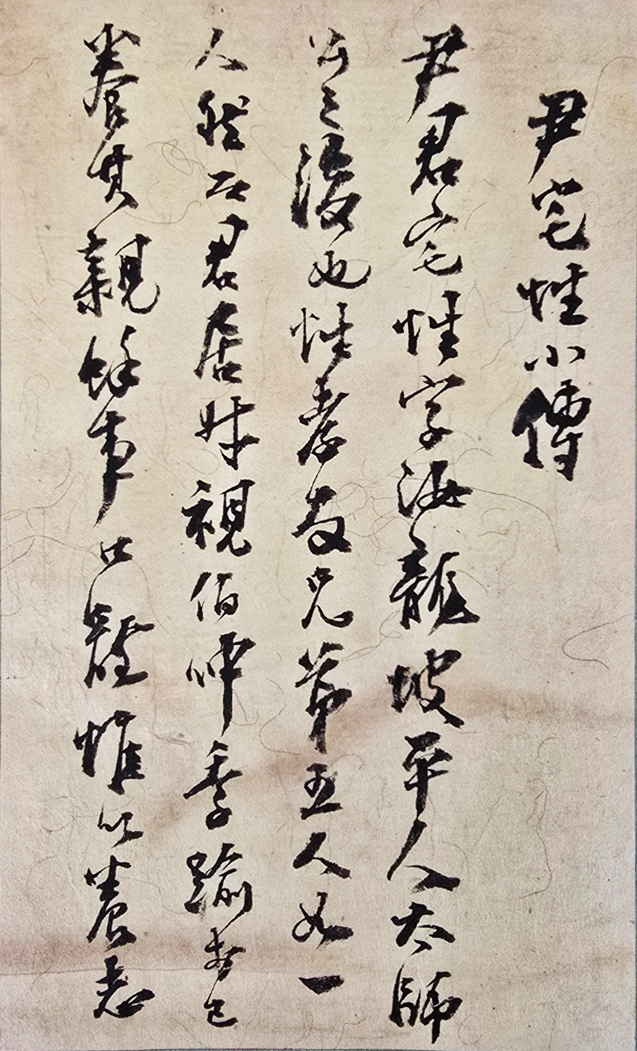 尹宅性小傳
尹君宅性字海龍坡平人太師
公之後也性孝友兄弟五人如一
人然而君居仲視伯仲季踰於己
養其親餘事口體惟以養志